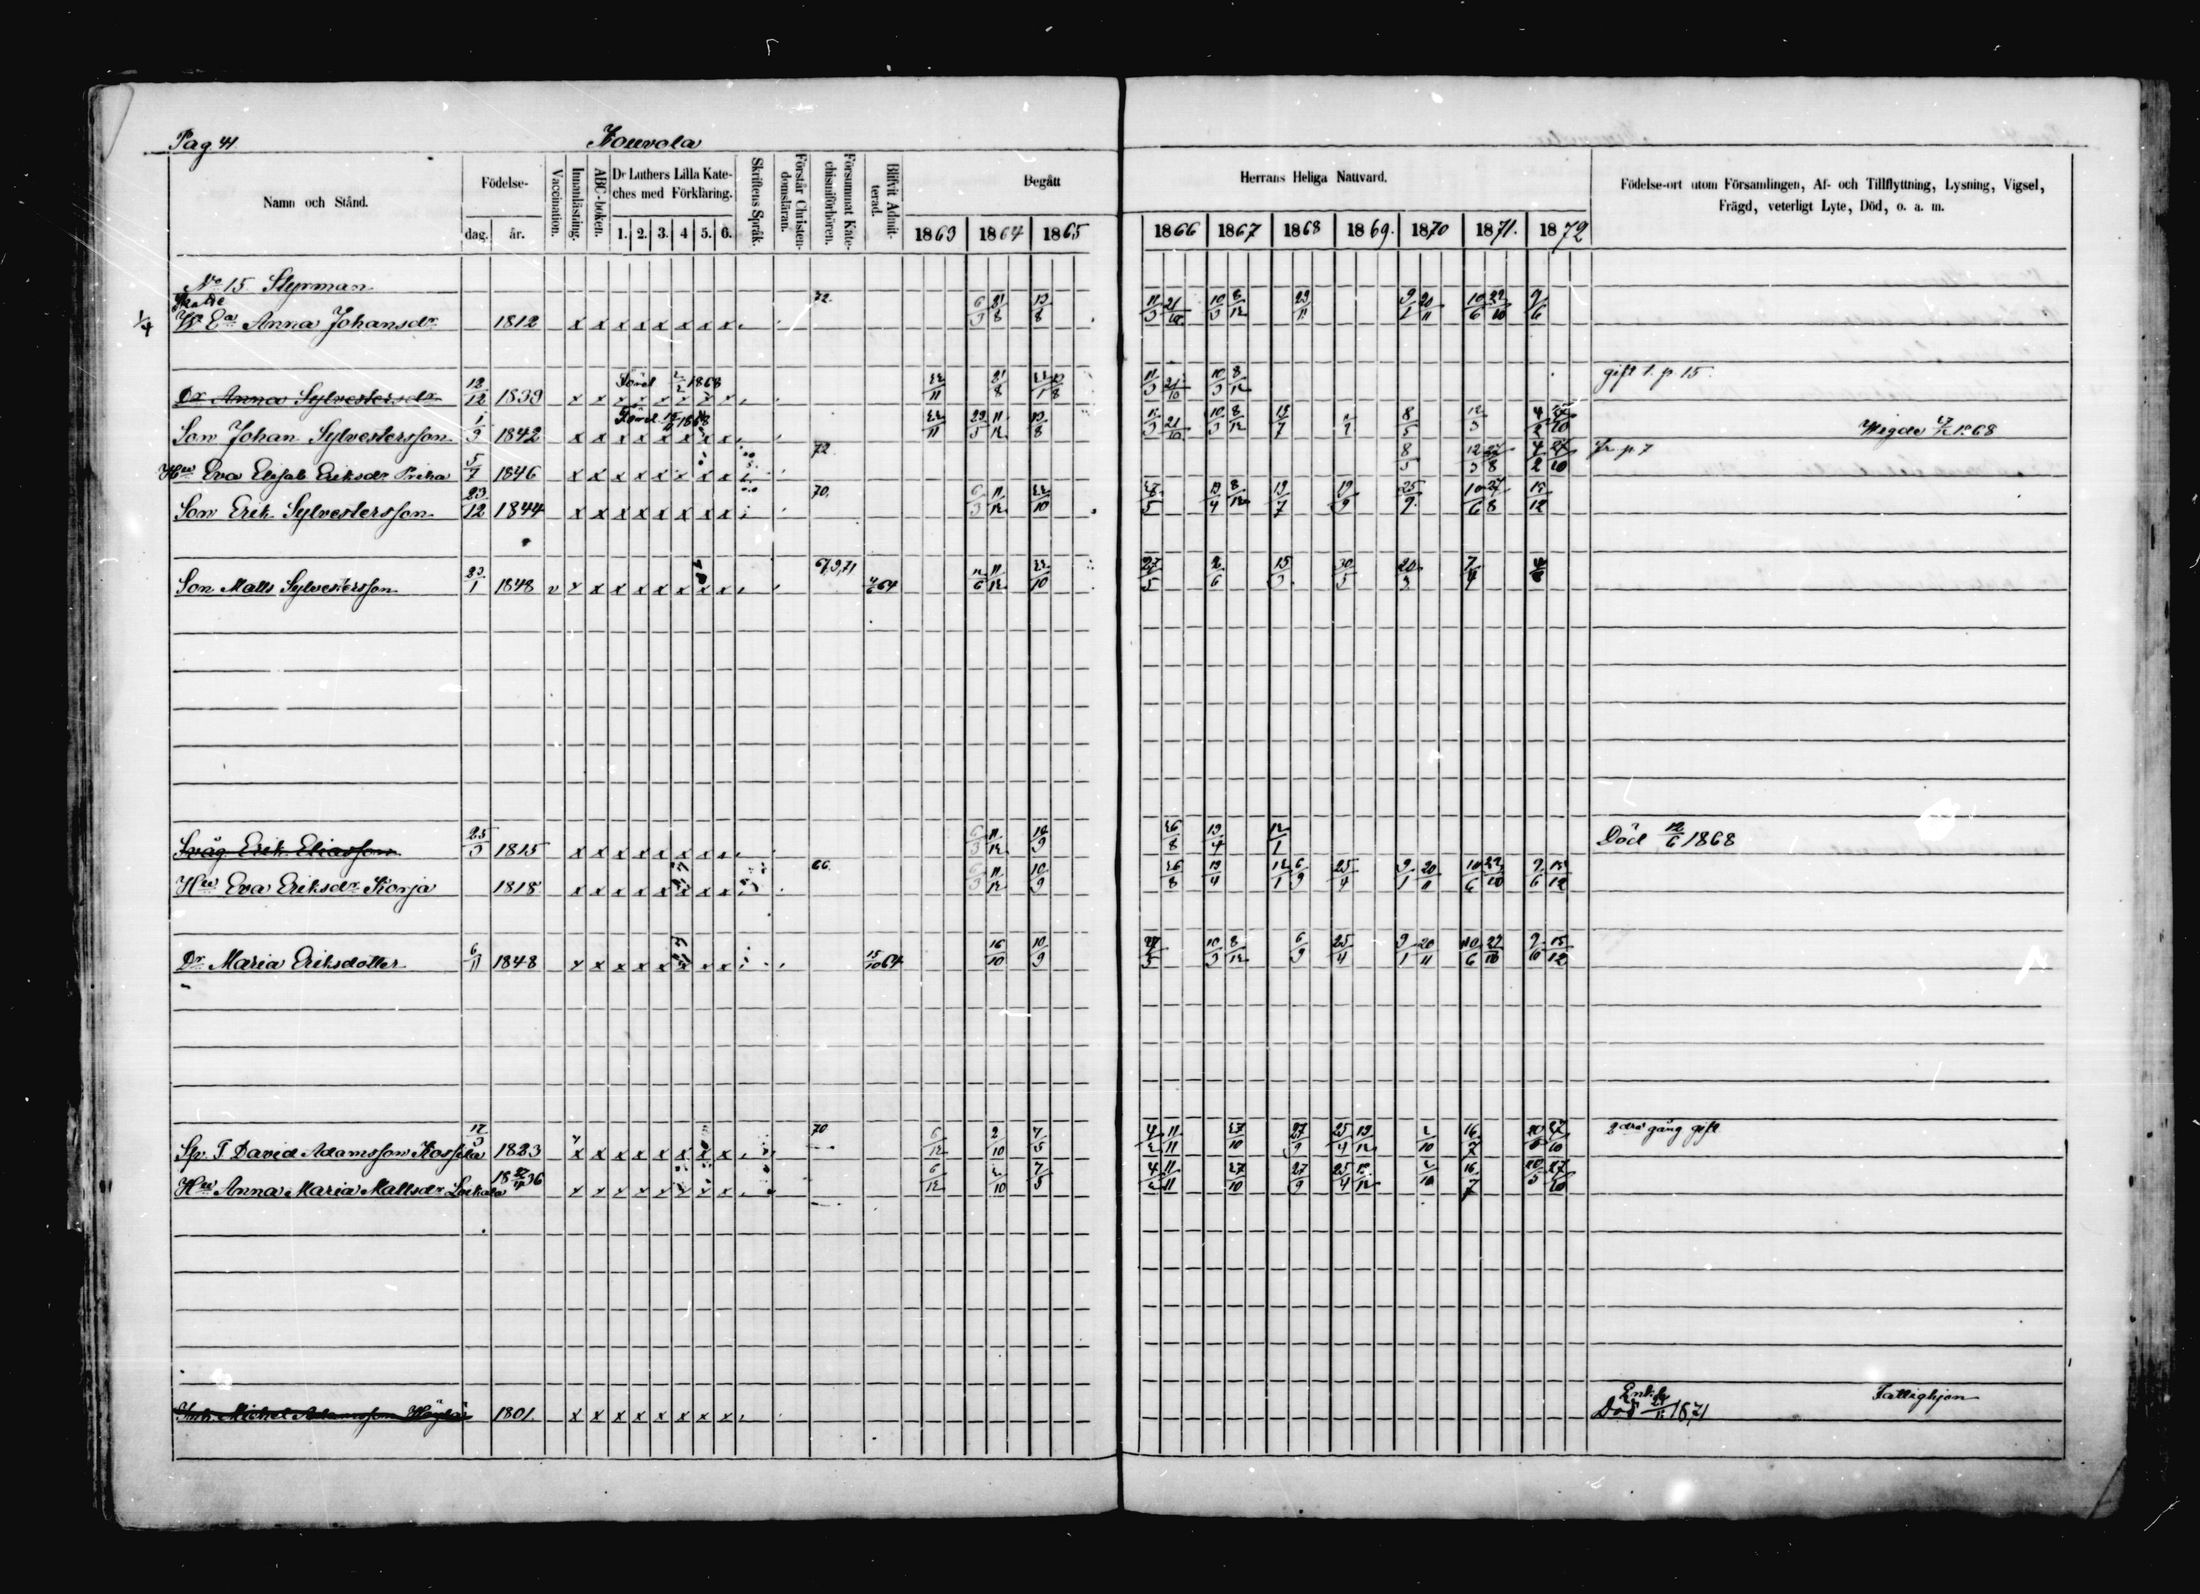 Pag 41 Kouvola
Namn och Stånd. Födelse- dag. år. Vaccination. Innanläsning. ABC-boken. Dr Luthers Lilla Kate-ches med Förklaring. 1. 2. 3. 4 5. 6. Skriftens Språk. Förstår Christen-domsläran. Försummat Kate-chismiförhören. Blifvit Admit-terad. Begått 1863 1864 1865 Herrans Heliga Nattvard. 1866 1867 1868 1869. 1870 1871. 1872 Födelse-ort utom Församlingen, Af- och Tillflyttning, Lysning, Vigsel, Frägd, veterligt Lyte, Död, o. a. m.
No 15 Styrman
1/4 Ea Anna Johansdr 1812 x x x x x x x x 72. 6/3 21/8 13/8 11/3 21/10 10/3 8/12 29/11 9/1 20/11 10/6 22/10 9/6
Dr Anna Sylvestersdr 12/12 1839 1868 22/11 21/8 11/3 21/10 10/3 8/12 gift t. p. 15.
Son Johan Sylvestersson 1/9 1842 x x x x x x x x 22/11 29/5 11/12 13/8 21/10 10/3 8/12 19/7 8/5 12/3 4/2 Wigde 1868
Hu Eva Elisab Eriksdr Prika 5/7 1846 x x x x x x x x 72. 8/5 12/3 27/8 4/2 27/10 fr. p. 7
Son Erik Sylvestersson 23/12 1844 x x x x x x x x 70. 6/3 11/12 22/10 13/4 8/12 19/7 19/9 25/9 10/6 27/8 15/12
Son Matts Sylvestersson 23/1 1848 v x x x x x x x x 4/6 64 11/12 22/10 27/5 2/6 15/3 30/5 20/3 7/4
Svåg. Erik Eliasson 25/3 1815 x x x x x x x x 6/3 11/12 10/9 26/8 19/4 12/1 Död 12/6 1868
Hu Eva Eriksdr Korja 1818 x x x x x x x x 66. 6/3 11/12 10/9 26/8 19/4 12/1 6/9 25/4 9/1 20/11 10/6 22/10 9/6 15/12
Dr Maria Eriksdotter 6/11 1848 x x x x x x x x 15/10 64 16/10 10/9 27/5 10/3 8/12 6/9 25/4 9/1 20/11 10/6 22/10 9/6 15/12
Sp. T David Adamsson 12/3 1823 x x x x x x x x 70 6/12 2/10 7/5 4/2 11/11 27/10 27/9 25/4 19/12 2/10 16/7 20/5 27/10 2dra gång gift
Hu Anna Maria Mattsdr 1836 x x x x x x x x 6/12 2/10 7/5 4/2 11/11 27/10 27/9 25/4 19/12 2/10 16/7 20/5 27/10
Michel Adamsson 1801. x x x x x x x x Enkl. Död 1871 Fattighjon